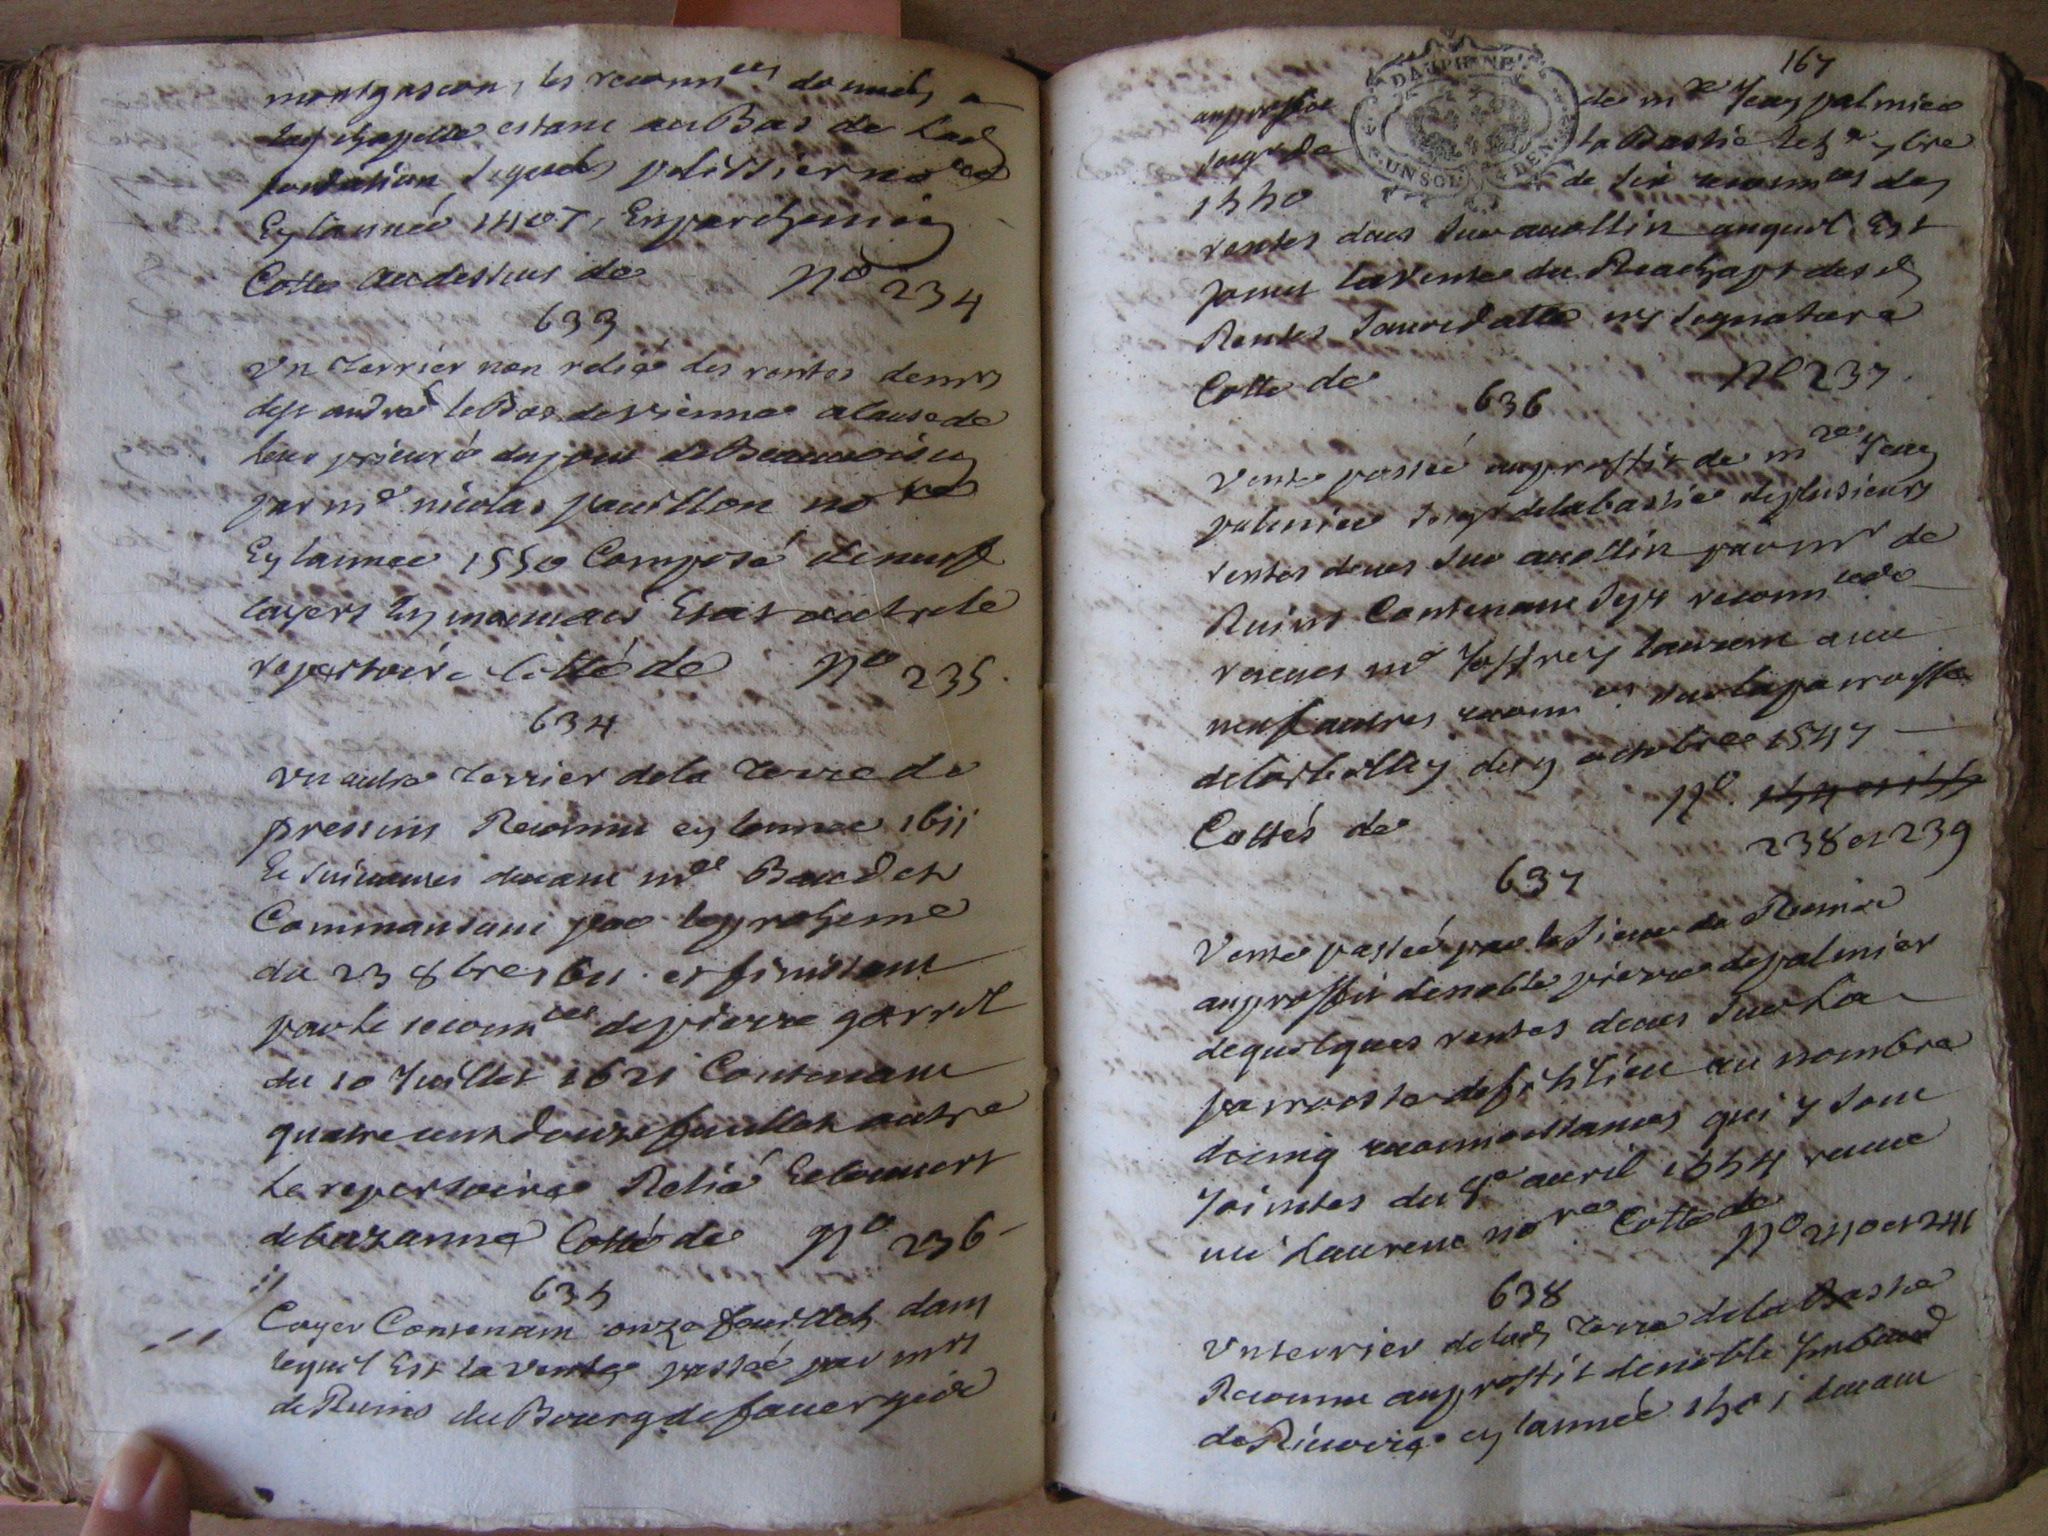 montgascon, les reconn ces données a
lad chapelle estant au Bas de Lad
fondation signués pelissier no re
En lannée 1407, En parchemin
Cotte au dessus de No 234
633
Un terrier non relié des rentes de mrs
de st andré le Bas de vienne a cause de
leur prieuré du pont de Beauvoisin
par me nicolas pavillon no re
En lannee 1550 Composé de neuf
cayers En
repertoire Cotté de No 235.
634
Un autre terrier de la terre de
pressins Reconnu en lannee 1611
Et suivantes devant me Baudet
Commansant par le proheme
du 23 8bre 1611. et finissant
par la reconn ce de pierre
du 10 Juillet 1621 Contenant
quatre cent douze feuillets outre
Le repertoire Relié Et couvert
de bazanne Cotté de No 236
635
Cayer Contenant onze feuillets dans
lequel Est la vente passée par mrs
de Ruins du Bourg de faverges
167
DAUPHINÉ
UN SOL 4 DEN
au proffit de mre Jean palmier
seigr de la Bastie le 7bre
1550 de six reconn ces des
rentes dues sur auollin auquel Est
joint la vente du Rachapt desd
Rentes sans datte ny signature
Cotte de No 237.
636
Vente passée au proffit de mre Jean
palmier seigr de la bastie de plusieurs
rentes dues sur auollin par mr de
Ruins Contenant sept reconn ces
receues me Joffrey Laurent avec
neuf autres reconn ces sur la parroisse
de Corbellin du octobre 1547
Cottés de No.
238 et 239
637
Vente passée par le sieur de Ruins
au proffit de noble pierre de palmier
de quelques rentes dues sur La
parroisse de au nombre
de cinq reconnoissances qui y sont
Jointes du 8e avril 1554 receue
me Laurent no re Cotte de No 240 et 241
638
Un terrier de lad terre de la Bastie
Reconnu au proffit de noble Imbaud
de Riuoire en lannée 1501 devant